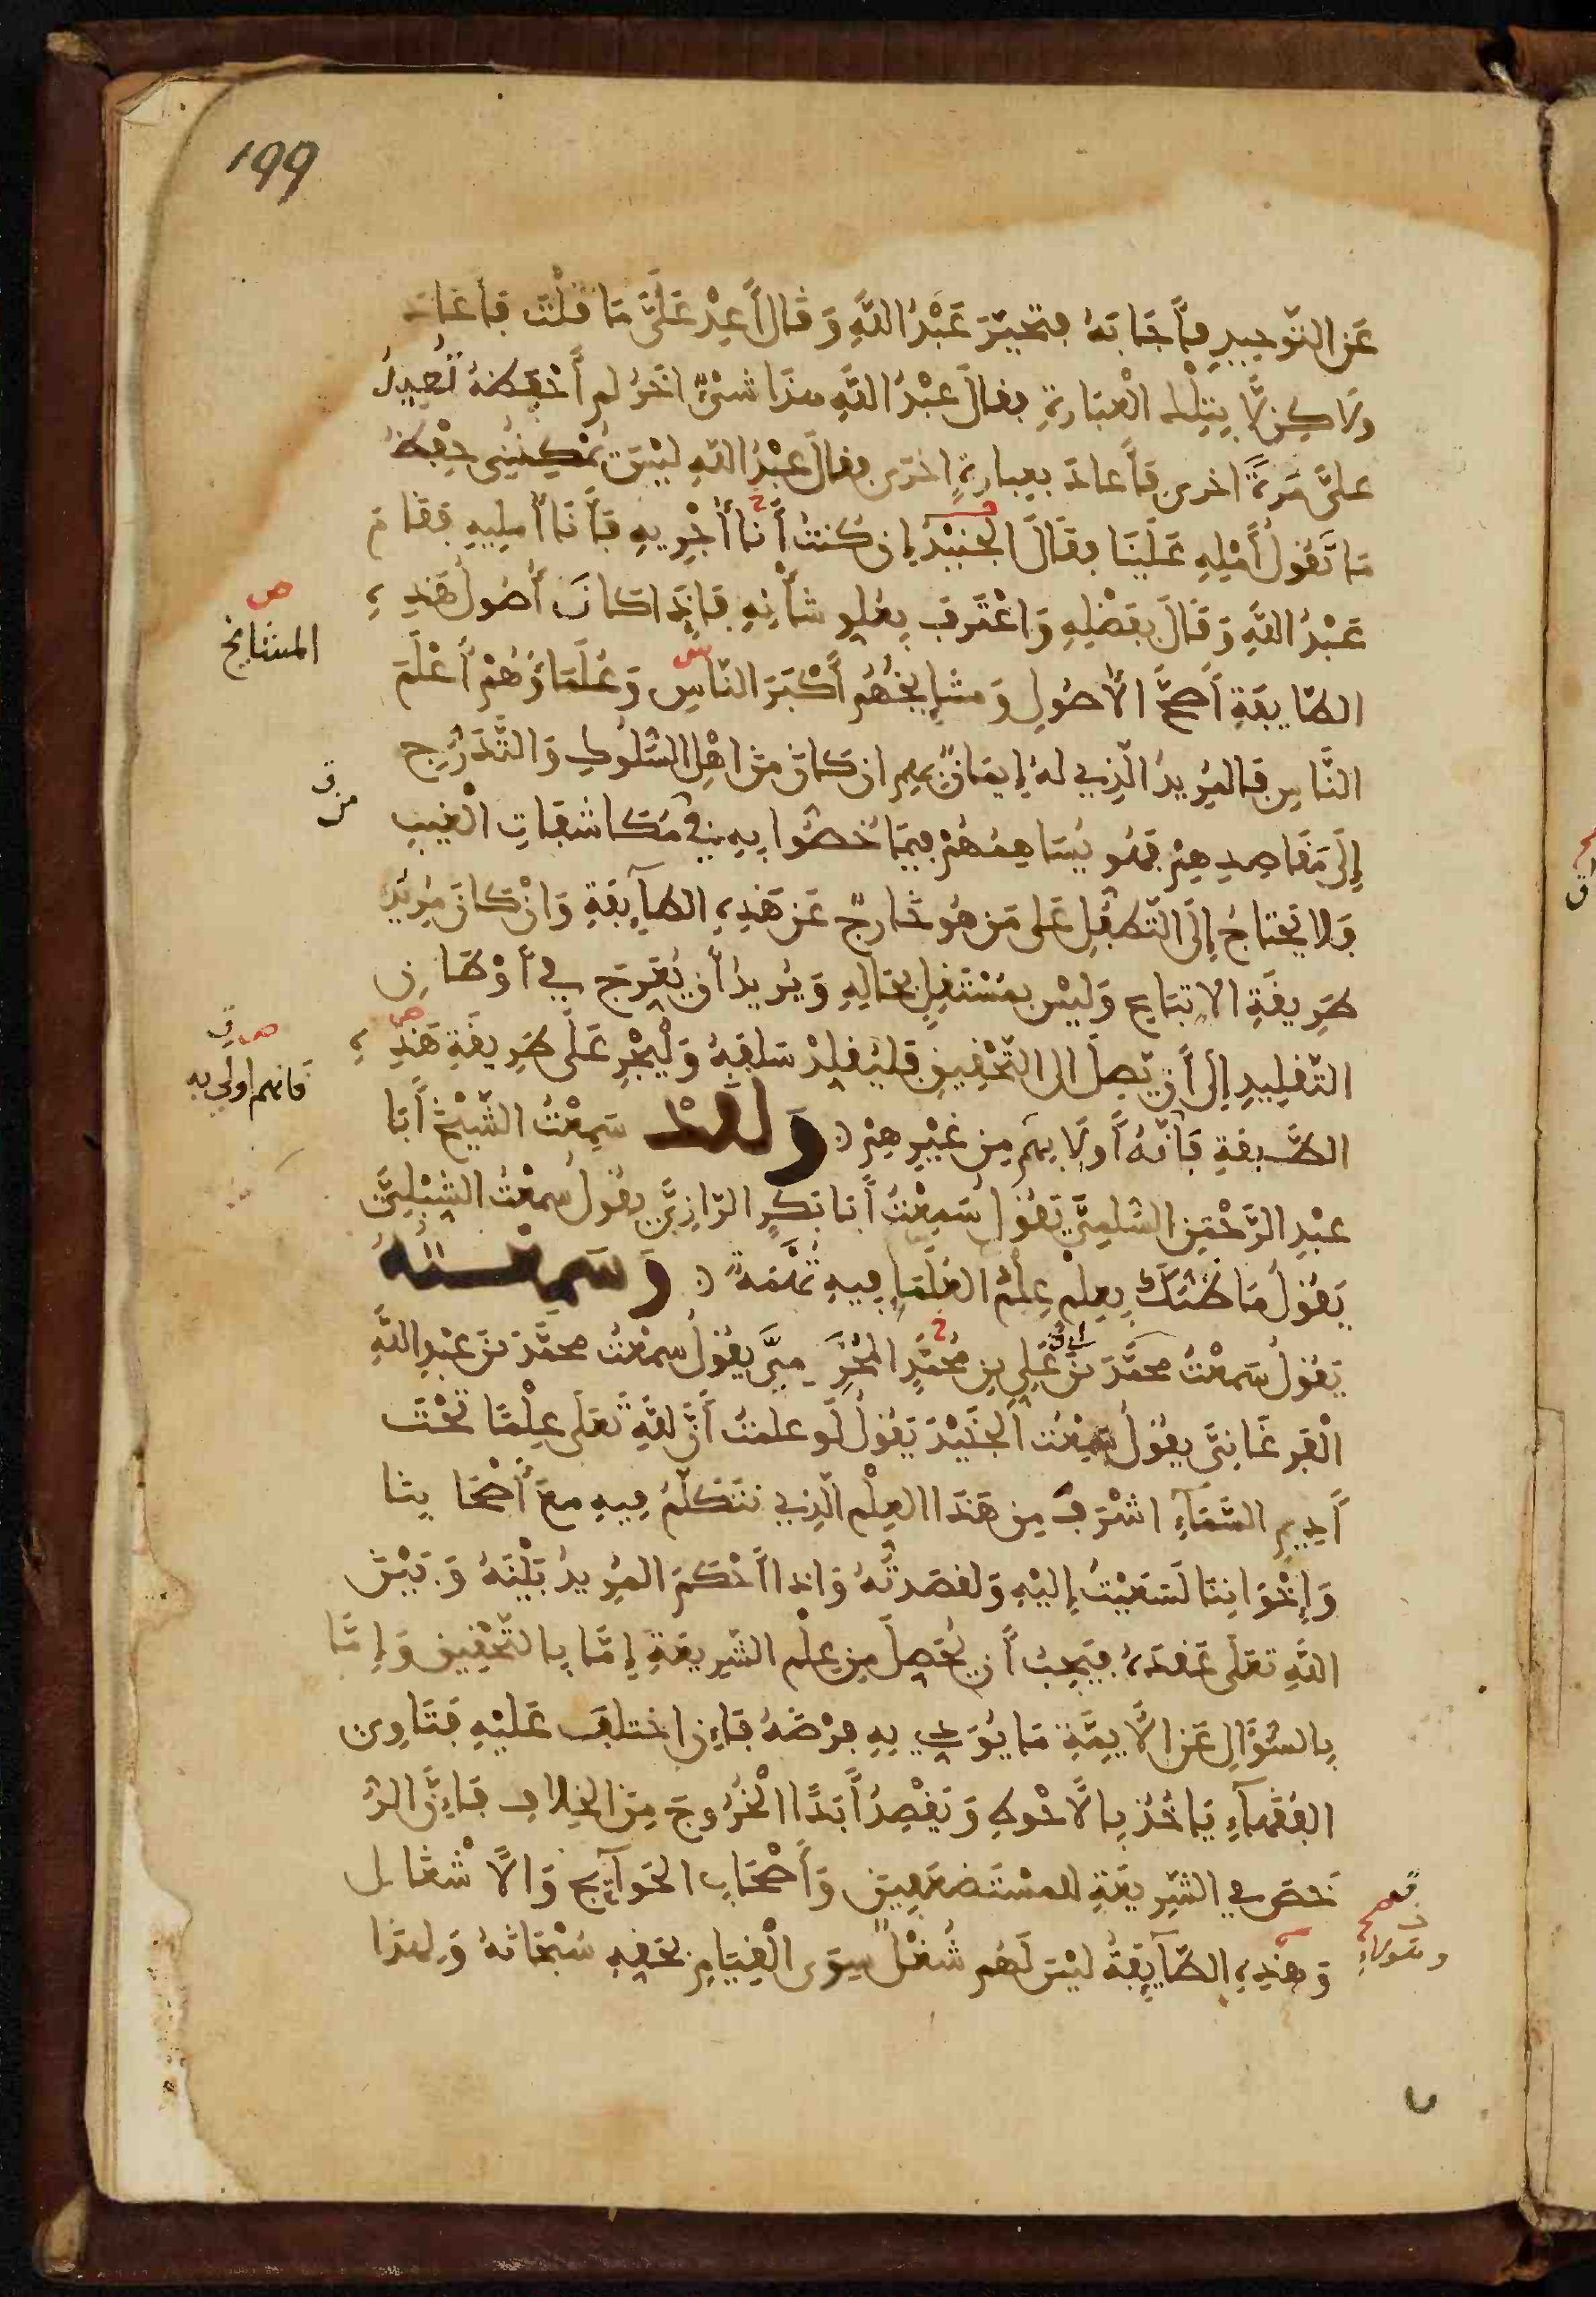 199
عَنِ التَّوحِيدِ فَأَجَابَهُ فَتَحَيَّرَ عَبْدُ اللَّهِ وَقَالَ أَعِدْ عَلَيَّ مَا قُلْتَ فَأَعَادَ
وَلَاكِن لَّا بِتِلْكَ الْعِبَارَةِ فقالَ عَبْدُ اللَّهِ هذَا شَيْءٌ اخَرُ لم أَحْفَظْهُ تُعِيدُهُ
عَلَيَّ مَرَّةً اخرى فَأَعادَ بِعِبارةٍ اخرَى فقالَ عَبْدُ اللَّهِ لَيْسَ يُمْكِنُنِي حِفْظُ
مَا تَقُولُ أَمْلِهِ عَلَيْنَا فقَالَ الْجُنَيْدُ إن كُنتُ أَنَا أُجْرِيهِ فَأَنَا أُمْلِيهِ فَقَامَ
عَبْدُ اللَّهِ وَقَالَ بِفَضْلِهِ وَاعْتَرَفَ بِعُلُوِ شأْنِهِ فَإِذَا كَانَ أُصُولُ هَذِهِ
المشايخ ص
الطَّايِفَةِ أَصَحَّ الْأُصُولِ وَمَشَايِخُهُمْ أَكْبَرَ النَّاسِ وَعُلَمَاؤُهُمْ أَعْلَمَ
النَّاسِ فَالمُرِيدُ الَّذِي لَهُ إِيمَانٌ بِهِم ان كَانَ مِنَ اهْلِ السُّلُوكِ وَالتَّدَرُّجِ
من ق
إِلَى مَقَاصِدِهِمْ فَهُو يُسَاهِمُهُمْ فِيمَا خُصُّوا بِهِ مِنْ مُكَاشَفَاتِ الْغَيْبِ
وَلَا يَحْتَاجُ إِلَى التَّطَفُّلِ عَلَى مَن هُو خَارِجٌ عَن هَذِهِ الطَّآيِفَةِ وَإِنْ كَانَ مُرِيدُ
طَرِيقَةِ الاتِّبَاعِ وَلَيْسَ بِمُسْتَقِلٍّ بِحَالِهِ وَيُرِيدُ أَن يُعَرِّجَ فِي أَوْطَانِ
التَّقْلِيدِ إِلَى أَن يَصِلَ الى التَّحْقِيقِ فَلْيُقَلِّدْ سَلَفَهُ وَلْيَجْرِ عَلَى طَرِيقَةِ هَذِهِ
فانهم اولى به ص ق
الطَّبقَةِ فَأَنَّهُ أَوْلَا بِهِم مِن غَيْرِهِمْ وَلَقَدْ سَمِعْتُ الشَّيْخَ أَبَا
عَبْدِ الرَّحْمَنِ السُّلَمِيَّ يَقُولُ سَمِعْتُ أَبَا بَكْرٍ الرَّازِيَّ يقُولُ سَمِعْتُ الشِّبْلِيَّ
يَقُولُ مَا ظَنُّكَ بِعِلْمٍ عِلْمُ العُلَمَاءِ فِيهِ تُهَمَةٌ وَسَمِعْتُهُ
يَقُولُ سَمِعْتُ محمَّدَ بْنَ عَلِي بنِ مُحَمَّدٍ الْمُخَرِّمِيَّ يقُولُ سَمِعْتُ محمَّدَ بْنَ عَبْدِ اللَّهِ
الْفَرغَانِيَّ يقُولُ سَمِعْتُ الجُنَيْدَ يَقُولُ لَو علمتُ أَنَّ لِلَّهِ تَعَلَى عِلْمًا تَحْتَ
أَدِيمِ السَّمَآءِ اشْرَفَ مِن هَذَا العِلْمِ الَّذِي نَتَكَلَّمُ فِيهِ مَعَ أَصْحَابِنا
وَإِخْوَانِنَا لَسَعَيْتُ إِلَيْهِ وَلَقَصَدتُّهُ وَإِذَا أَحْكَمَ المُرِيدُ بَيْنَهُ وَبَيْنَ
اللَّهِ تعَلَى عَقْدَهُ فَيَجِبُ أَن يُحَصِّلَ مِن عِلْمِ الشَّرِيعَةِ إِمَّا بِالتَّحْقِيقِ وَإِمَّا
بِالسُّؤَالِ عَنِ الْأَيِمَّةِ مَا يُؤَدِّي بِهِ فَرْضَهُ فَإِنِ اخْتَلَفَ عَلَيْهِ فَتَاوِى
الفُقَهَآءِ يَاخُذُ بِالْأَحْوَطِ وَيَقْصِدُ أَبَدًا الْخُرُوجَ مِنَ الخِلَافِ فَإِنَّ الرُّ
خَصَ فِي الشَّرِيعَةِ لِلمُسْتَضْعَفِينَ وَأَصْحَابِ الحَوَآيِجِ وَالْأَشْغَالِ
وَهَذِهِ الطَّآيِفَةُ لَيْسَ لَهُم شُغْلٌ سِوَى الْقِيَامِ بِحَقِّهِ سُبْحَانَهُ وَلِهَذَا
وهؤلاء